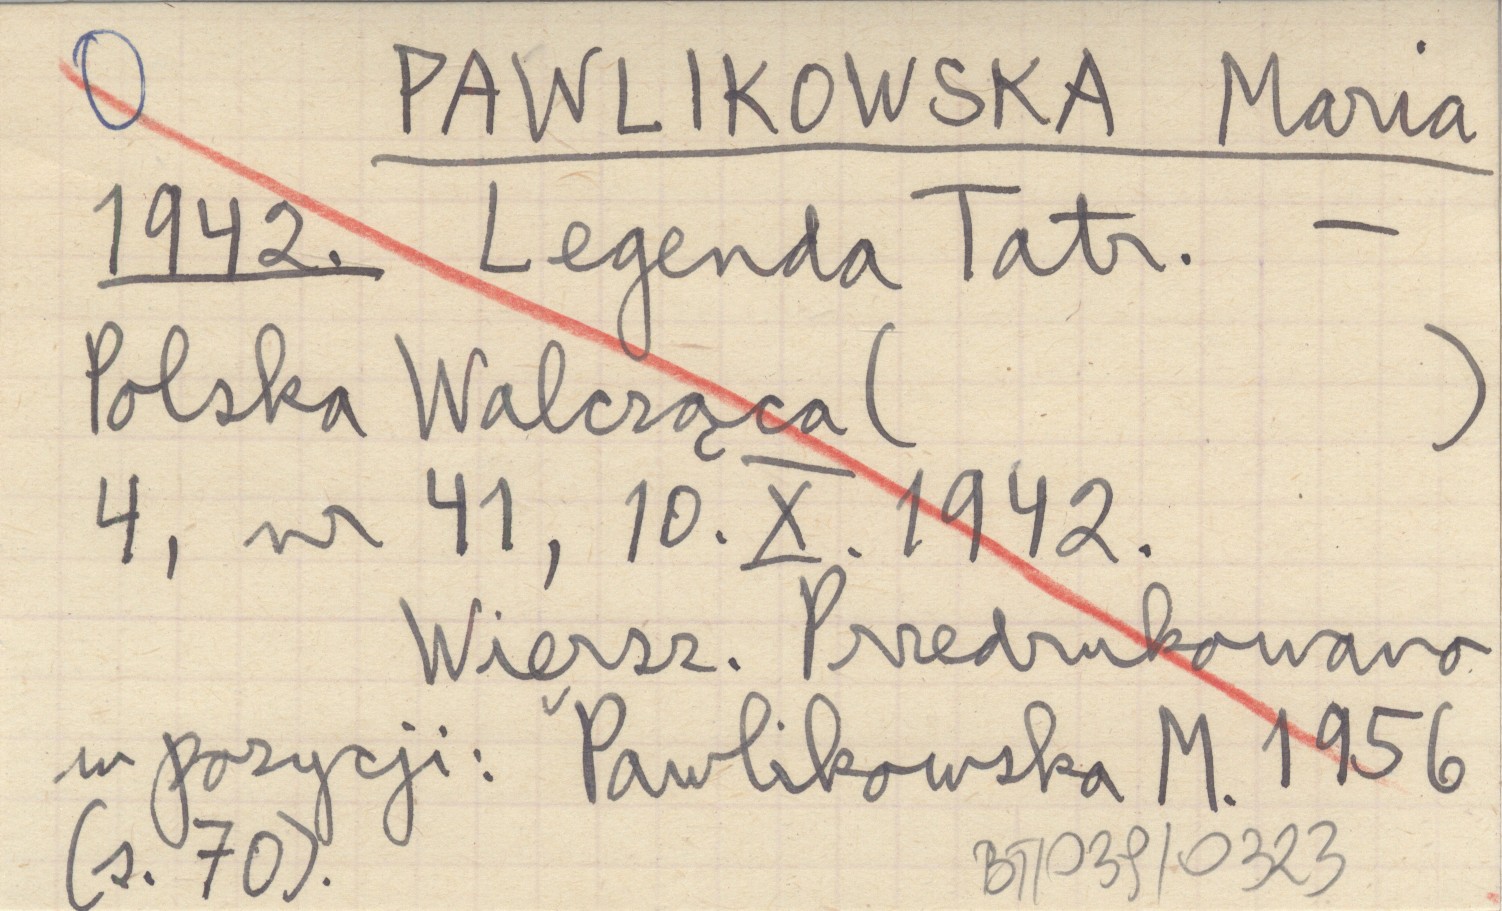 O PAWLIKOWSKA Maria
1942. Legenda Tatr. —
Polska Walcząca ( )
4, nr 41, 10.X.1942.
Wiersz. Przedrukowano
w pozycji: Pawlikowska M. 1956
(s. 70).
BT/039/0323